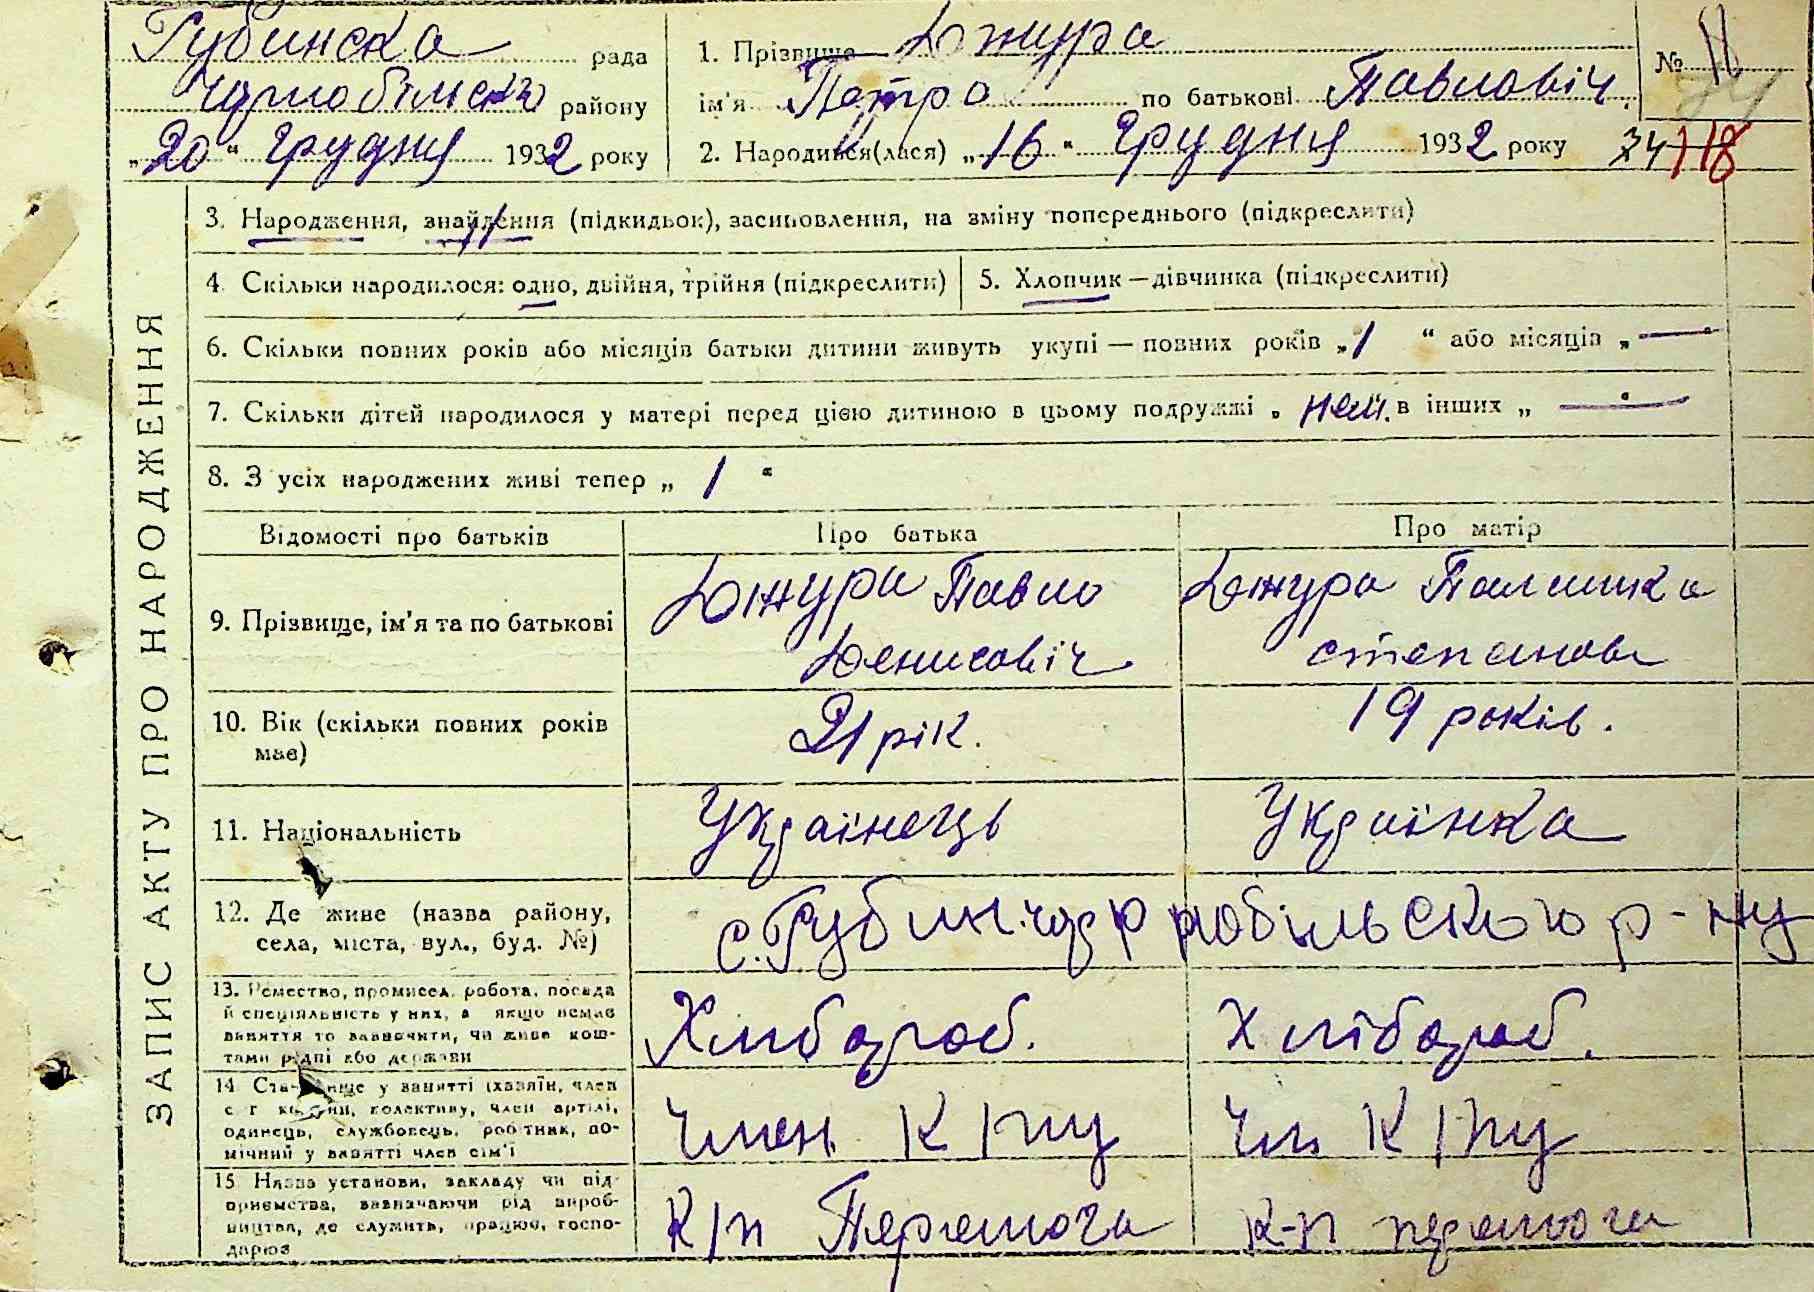 Губинска рада
Чорнобільско району
„20“ Грудня 1932 року
1. Прізвище Джура
ім'я Петро по батькові Павловіч.
2. Народився(лася) „16“ Грудня 1932 року
№ 11
74 118
ЗАПИС АКТУ ПРО НАРОДЖЕННЯ
3. Народження, знайдення (підкидьок), засиновлення, на зміну попереднього (підкреслити)
4. Скільки народилося: одно, двійня, трійня (підкреслити)
5. Хлопчик — дівчинка (підкреслити)
6. Скільки повних років або місяців батьки дитини живуть укупі — повних років „1“ або місяців „ —
7. Скільки дітей народилося у матері перед цією дитиною в цьому подружжі „ нем. в інших „ —
8. З усіх народжених живі тепер „ 1 “
Відомості про батьків Про батька Про матір
9. Прізвище, ім'я та по батькові
Джура Павло
Денисовіч
Джура Палашка
степанов
10. Вік (скільки повних років
має)
21 рік.
19 років.
11. Національність Українець Українка
12. Де живе (назва району,
села, міста, вул., буд. №)
с. Губин. Чорнобільского р-ну
13. Ремество, промисел, робота, посада
й спеціяльність у них, а якщо немає
заняття то зазначити, чи живе кош-
тами рідні або держави
Хлібороб.
Хлібороб.
14. Становище у занятті (хазяїн, член
с г комуни, колективу, член артілі,
одинець, службовець, робітник, по-
мічний у занятті член сім'ї
Член К/пу
Чл К/пу
15. Назва установи, закладу чи під-
приємства, зазначаючи рід вироб-
ництва, де служить, працює, госпо-
дарює
К/п Перемога
к-п перемога